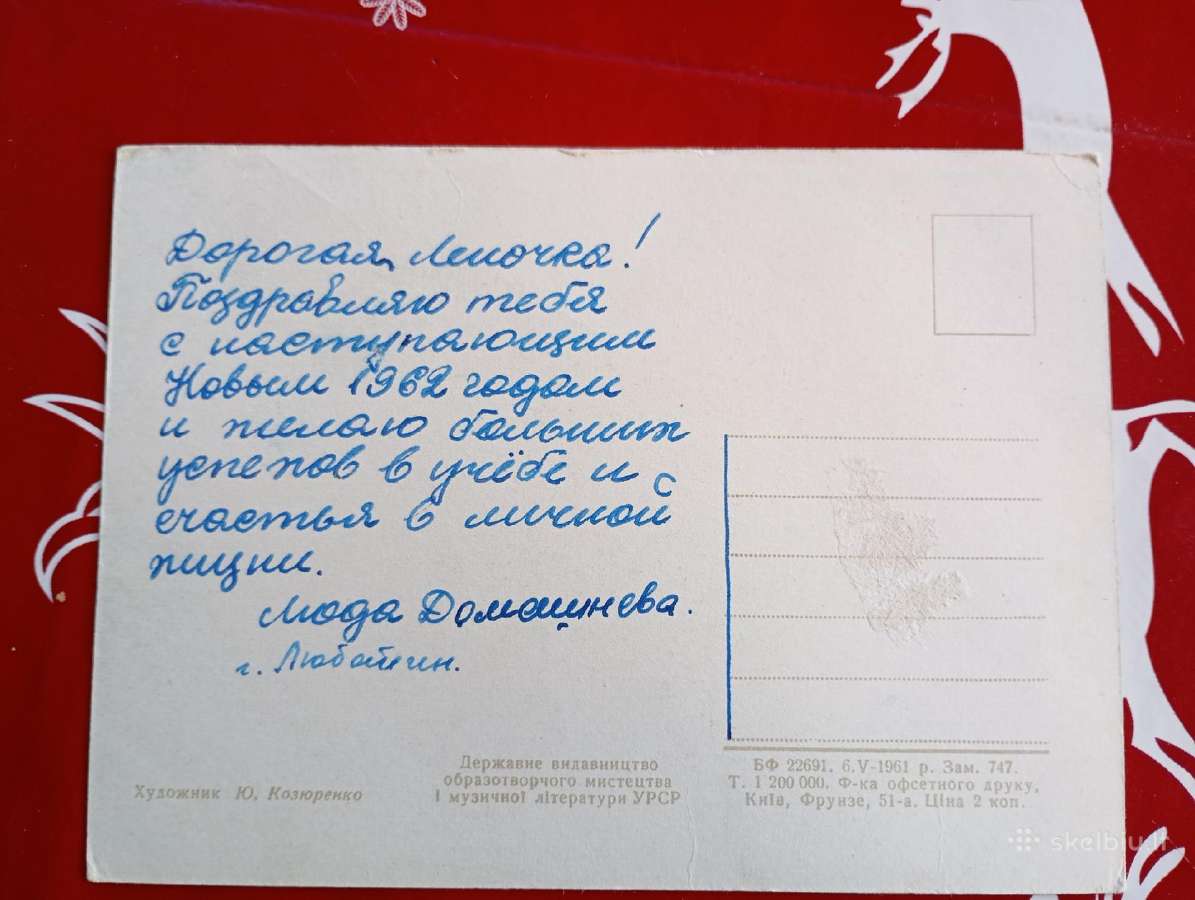 Дорогая Леночка!
Поздравляю тебя
с наступающим
Новым 1962 годом
и желаю больших
успехов в учёбе и с
счастья в личной
жизни.
Люда Домашнева.
г. Люботин.
Художник Ю. Козюренко
Державне видавництво
образотворчого мистецтва
і музичної літератури УРСР
БФ 22691. 6.V-1961 р. Зам. 747.
Т. 1 200 000. Ф-ка офсетного друку,
Київ, Фрунзе, 51-а. Ціна 2 коп.
skelbiu.lt